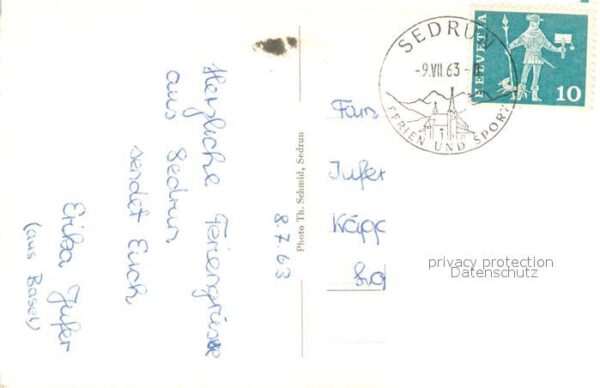 Herzliche Feriengrüsse
aus Sedrun
sendet Euch
Erika Jufer
(aus Basel)
8.7.63
Photo Th. Schmid, Sedrun
SEDRUN
-9.VII.63-
FERIEN UND SPORT
HELVETIA
10
Fam
Jufer
privacy protection
Datenschutz